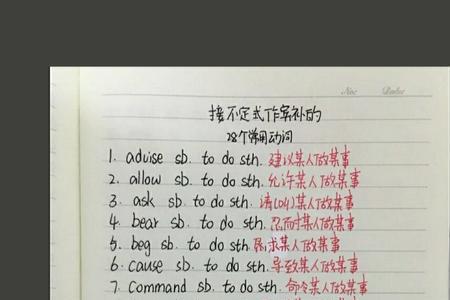 No: Date:
接不定式作宾补的
28个常用动词
1. advise sb. to do sth. 建议某人做某事
2. allow sb. to do sth. 允许某人做某事
3. ask sb. to do sth. 请(叫)某人做某事
4. bear sb. to do sth. 忍耐某人做某事
5. beg sb. to do sth. 恳求某人做某事
6. cause sb. to do sth. 导致某人做某事
7. Command sb. to do sth. 命令某人做某事